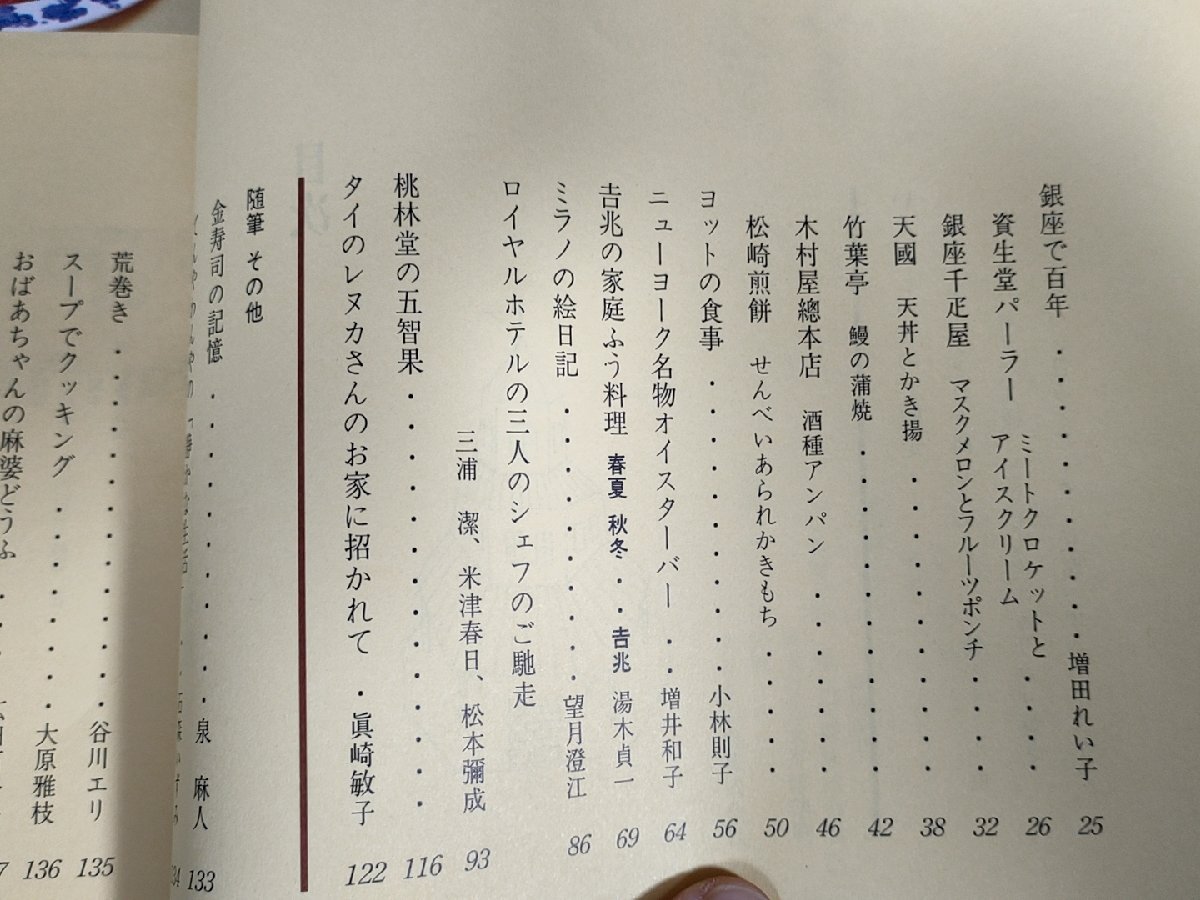 銀座で百年・・・・・・・・増田れい子 25
資生堂パーラー ミートクロケットと
アイスクリーム・・・26
銀座千疋屋 マスクメロンとフルーツポンチ・・・32
天國 天丼とかき揚・・・・・・38
竹葉亭 鰻の蒲焼・・・・・・・42
木村屋總本店 酒種アンパン・・・・46
松崎煎餅 せんべいあられかきもち・・・・50
ヨットの食事・・・・・・・・小林則子 56
ニューヨーク名物オイスターバー・・増井和子 64
吉兆の家庭ふう料理 春夏 秋冬・・吉兆 湯木貞一 69
ミラノの絵日記・・・・・・・・望月澄江 86
ロイヤルホテルの三人のシェフのご馳走
三浦 潔、米津春日、松本彌成 93
桃林堂の五智果・・・・・・・・・・・・116
タイのレヌカさんのお家に招かれて・眞崎敏子 122
随筆 その他
金寿司の記憶・・・・・・・・・泉 麻人 133
荒巻き・・・・・・・・・・谷川エリ 135
スープでクッキング・・・・・・大原雅枝 136
おばあちゃんの麻婆どうふ